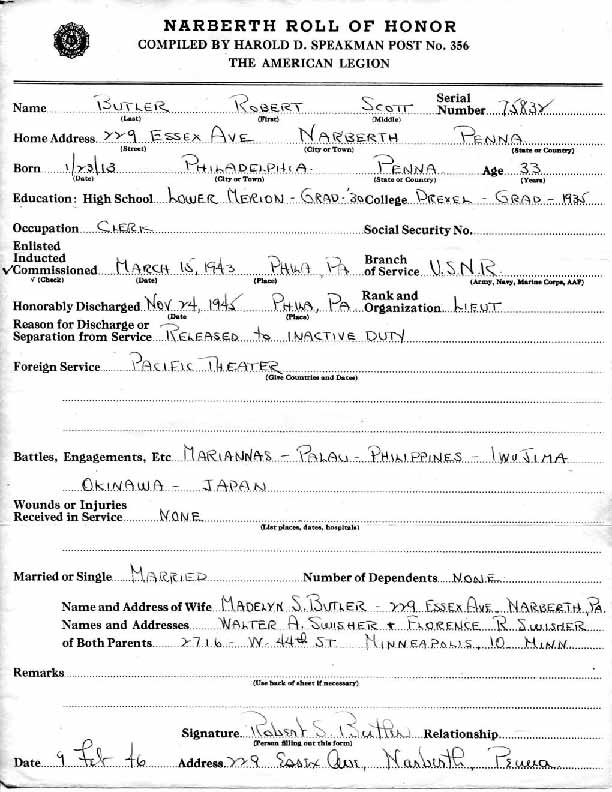 NARBERTH ROLL OF HONOR
COMPILED BY HAROLD D. SPEAKMAN POST No. 356
THE AMERICAN LEGION
Name BUTLER ROBERT SCOTT Serial Number 75832
(Last) (First) (Middle)
Home Address 229 ESSEX AVE NARBERTH PENNA
(Street) (City or Town) (State or Country)
Born 1/23/13 PHILADELPHIA PENNA Age 33
(Date) (City or Town) (State or Country) (Years)
Education: High School LOWER MERION - GRAD-'30 College DREXEL - GRAD - 1935
Occupation CLERK Social Security No.
Enlisted
Inducted
√Commissioned MARCH 15, 1943 PHILA, PA Branch of Service U.S.N.R.
√ (Check) (Date) (Place) (Army, Navy, Marine Corps, AAF)
Honorably Discharged NOV 24, 1945 PHILA, PA Rank and Organization LIEUT
(Date (Place)
Reason for Discharge or
Separation from Service RELEASED to INACTIVE DUTY
Foreign Service PACIFIC THEATER
(Give Countries and Dates)
Battles, Engagements, Etc MARIANNAS - PALAU - PHILIPPINES - IWO JIMA
OKINAWA - JAPAN
Wounds or Injuries
Received in Service NONE
(List places, dates, hospitals)
Married or Single MARRIED Number of Dependents NONE
Name and Address of Wife MADELYN S. BUTLER - 229 ESSEX AVE. NARBERTH, PA.
Names and Addresses WALTER A. SWISHER + FLORENCE R. SWISHER
of Both Parents 2716 - W. 44th ST MINNEAPOLIS, 10 MINN
Remarks
(Use back of sheet if necessary)
Signature Robert S. Butler Relationship
(Person filling out this form)
Date 9 Feb 46 Address 229 Essex Ave, Narberth, Penna